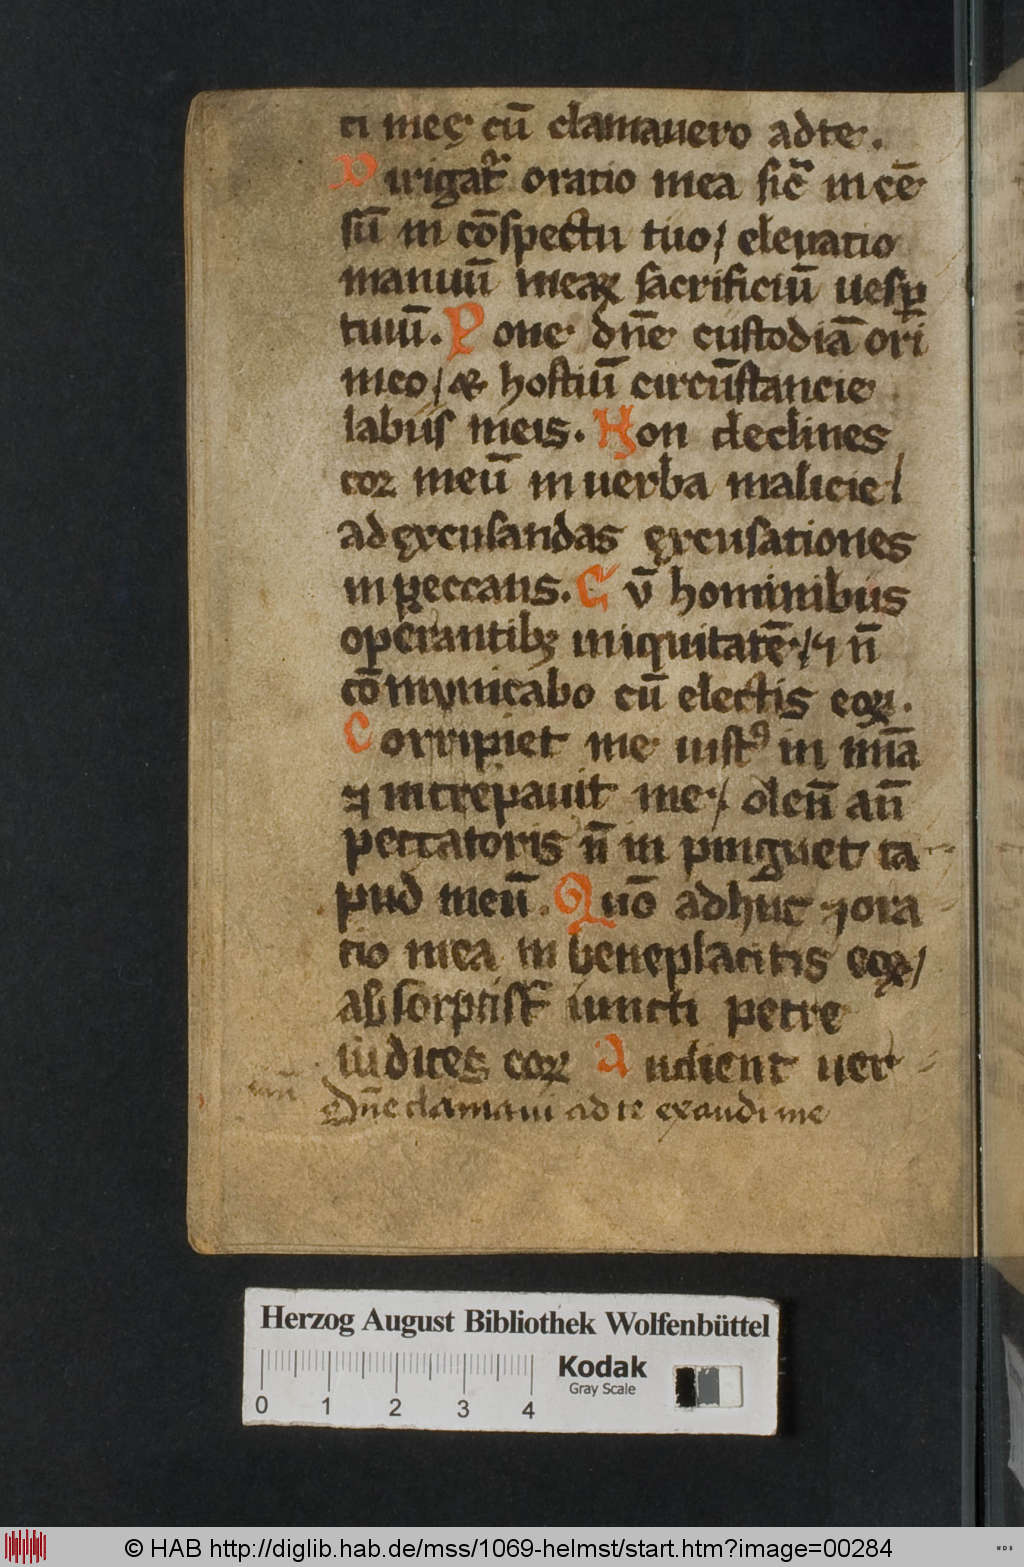 ti meę cū clamauero ad te.
Dirigat᷑ oratio mea sic̄ in cē
sū in cōspectu tuo / eleuatio
manuū meaꝝ sacrificiū uesꝑ
tinū. Pone dn̄e custodiā ori
meo / & hostiū circūstancie
labiis meis. Non declines
cor meū in uerba malicie /
ad excusandas excusationes
in peccatis. Cū hominibus
operantibꝫ iniquitatē / ⁊ n̄
cōmunicabo cū electis eoꝝ.
Corripiet me iustꝰ in mīa
⁊ increpauit me / oleū aū
peccatoris n̄ in pinguet ca
pud meū. Quō adhuc ⁊ ora
tio mea in beneplacitis eoꝝ /
absorpti sc̄ iuncti petre
iudices eoꝝ Audient uer
Dn̄e clamaui ad te exaudi me
Herzog August Bibliothek Wolfenbüttel
0 1 2 3 4
Kodak
Gray Scale
© HAB http://diglib.hab.de/mss/1069-helmst/start.htm?image=00284